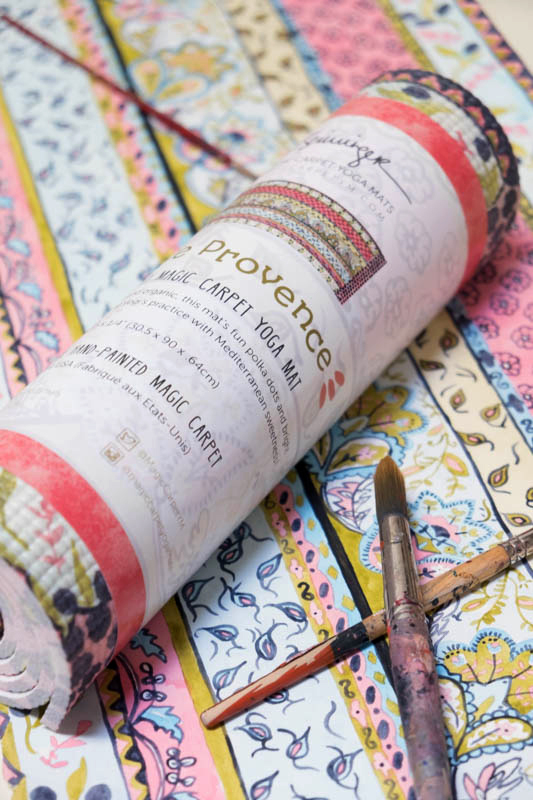 CARPET YOGA MATS
.COM
Provence
MAGIC CARPET YOGA MAT
organic, this mat's fun polka dots and bright
practice with Mediterranean sweetness
1/4" (30.5 x 90 x .64cm)
HAND-PAINTED MAGIC CARPET
USA (Fabriqué aux Etats-Unis)